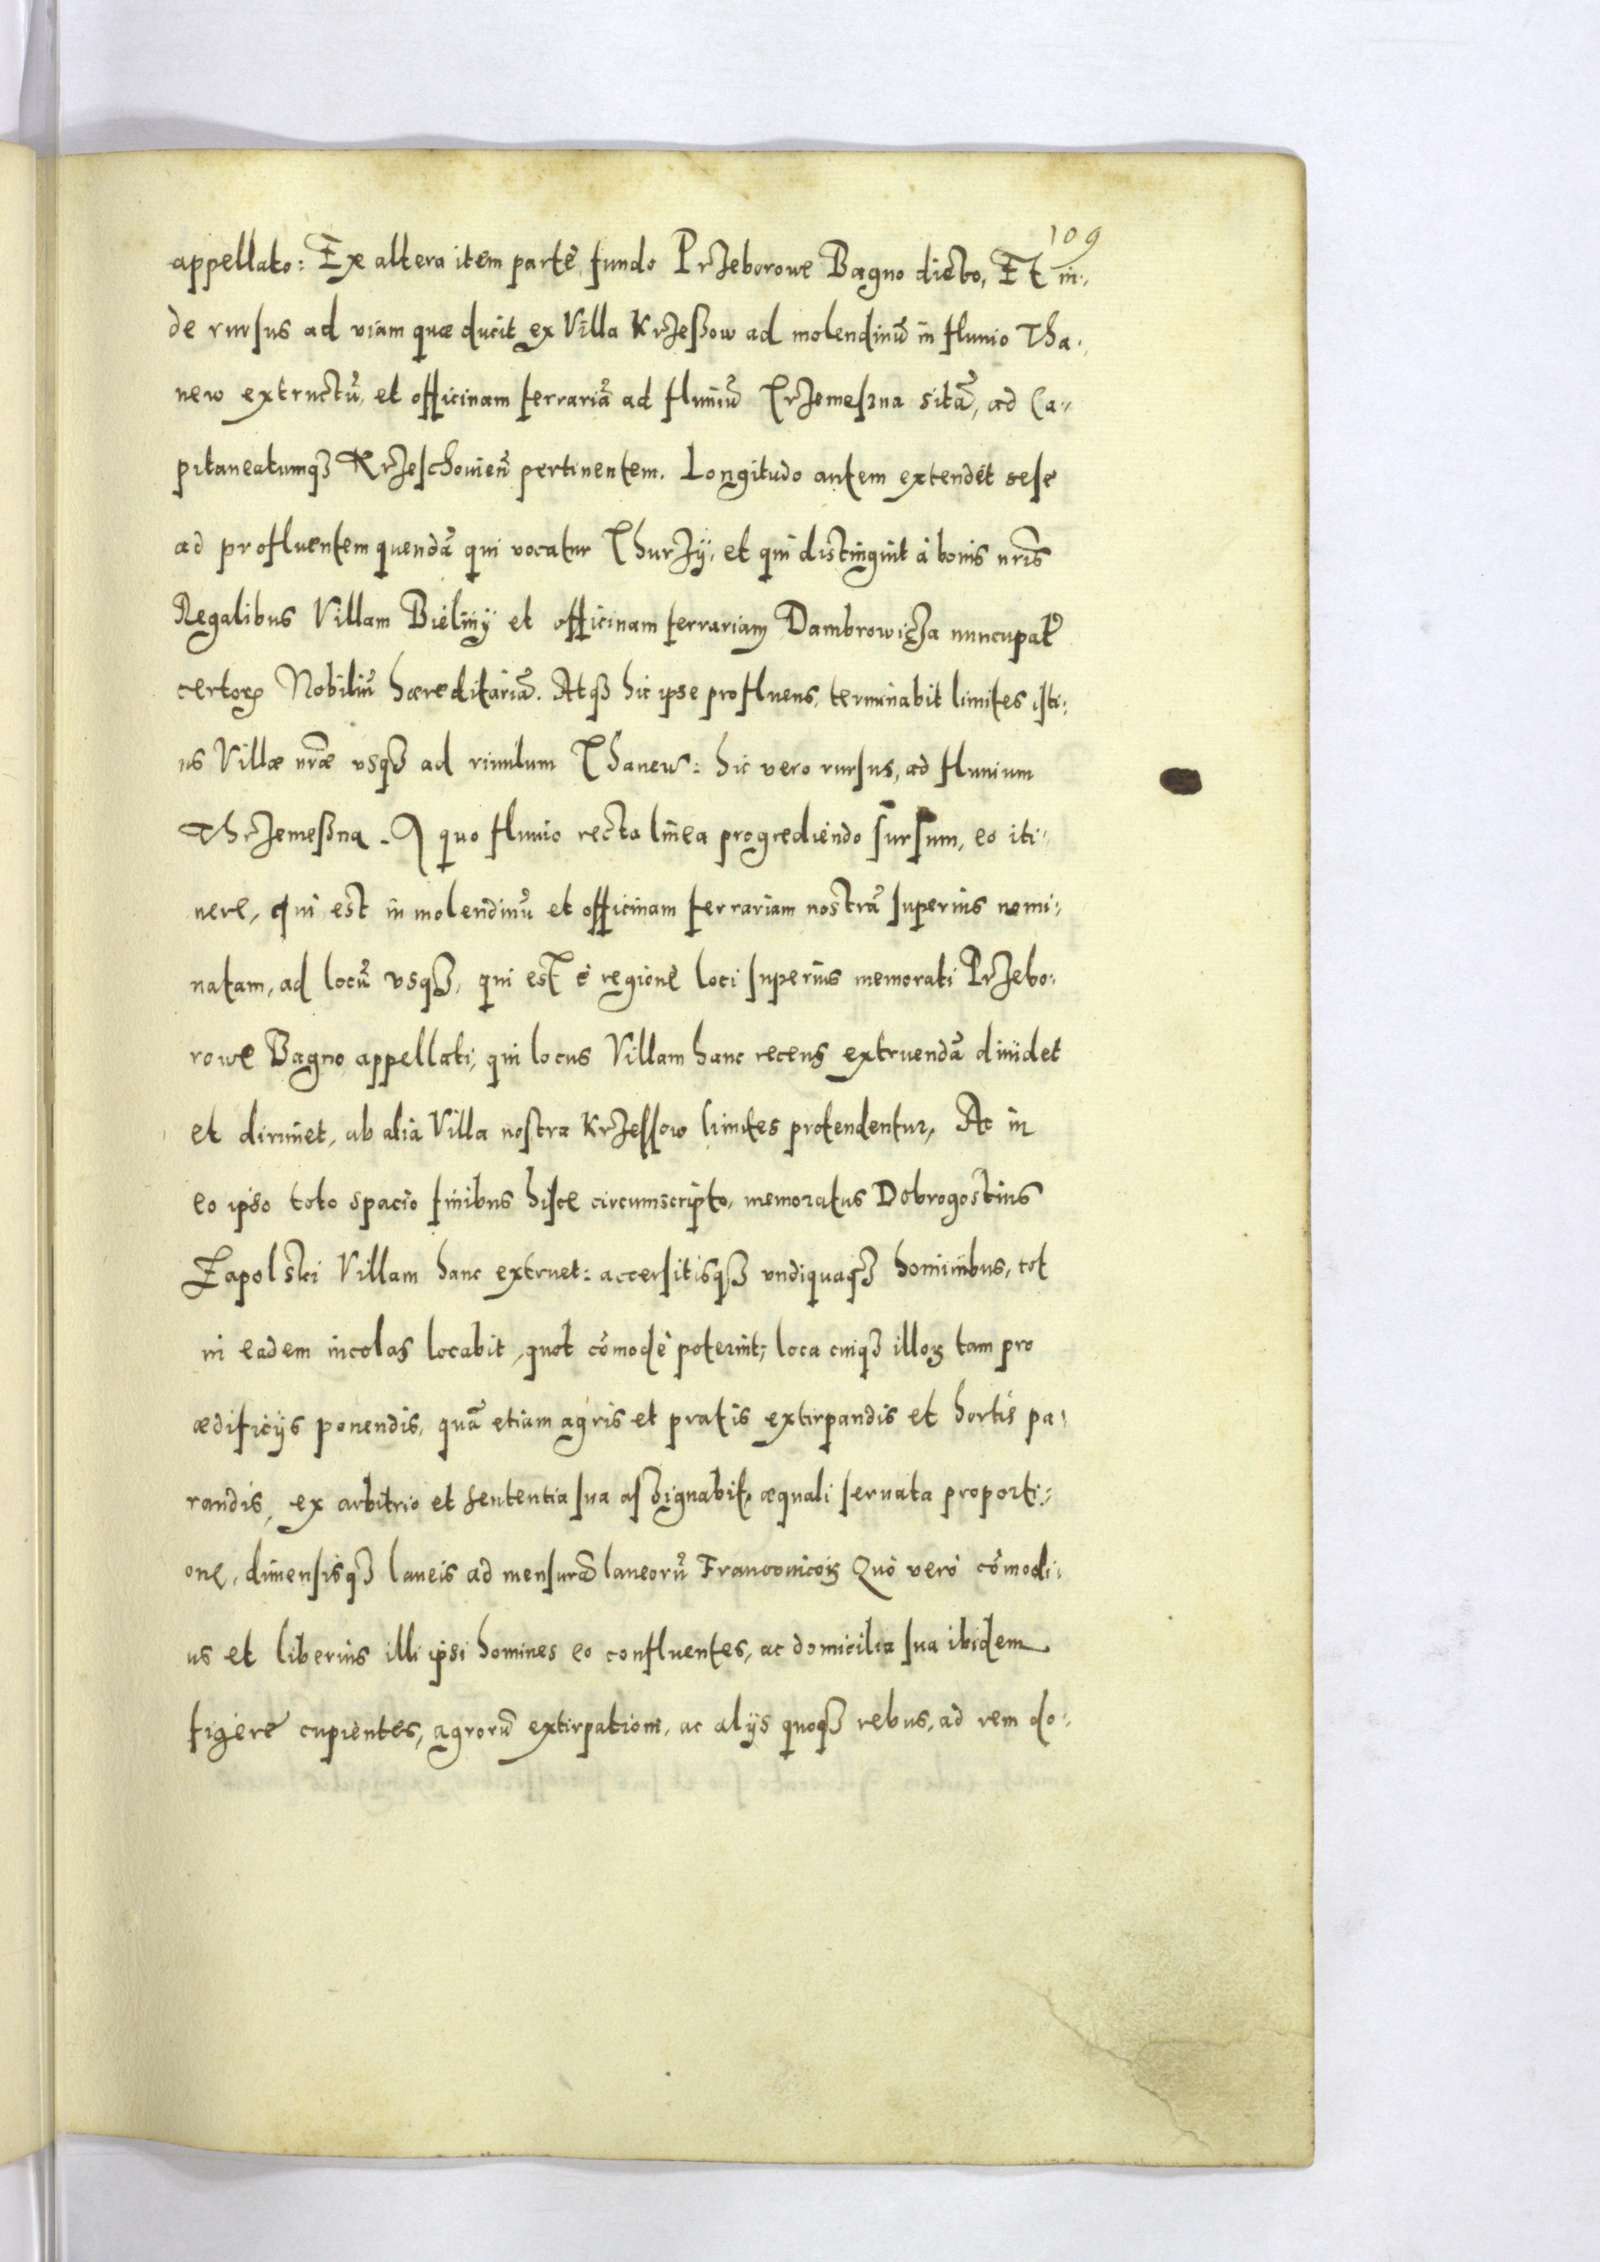 109
appellato: Ex altera item parte, fundo Przeborowe Bagno dicto, Et in-
de rursus ad viam quæ ducit ex Villa Krzeßow ad molendinū in fluuio Tha-
new extructū, et officinam ferrariā ad fluuiū Trzemeszna sitā, ad Ca-
pitaneatumqꝫ Krzeschouien̄ pertinentem. Longitudo autem extendet sese
ad profluentem quendā qui vocatur Thurzÿ, et qui distinguit à bonis nr̄is
Regalibus Villam Bieliny et officinam ferrariam Dambrowicza nuncupat̄
certoꝝ Nobiliū hæreditariā. Atqꝫ hic ipse profluens, terminabit limites isti-
us Villæ nr̄æ vsqꝫ ad riuulum Thanew: hic vero rursus, ad fluuium
Thrzemeßna. A quo fluuio recta linea progrediendo sursum, eo iti-
nere, qui est in molendinū et officinam ferrariam nostrā superius nomi-
natam, ad locū vsqꝫ, qui est è regione loci superius memorati Przebo-
rowe Bagno appellati, qui locus Villam hanc recens extruendā diuidet
et dirimet, ab alia Villa nostra Krzessow limites protendentur, Ac in
eo ipso toto spacio finibus hisce circumscripto, memoratus Dobrogostius
Zapolski Villam hanc extruet: accersitisqꝫ vndiquaqꝫ hominibus, tot
in eadem incolas locabit, quot cōmodè poterint; loca cuiqꝫ illoꝝ tam pro
ædificijs ponendis, quā etiam agris et pratis extirpandis et hortis pa-
randis, ex arbitrio et sententia sua assignabit, æquali seruata proporti-
one, dimensisqꝫ laneis ad mensurā laneorū Franconicoꝝ Quò verò cōmodi-
us et liberius illi ipsi homines eo confluentes, ac domicilia sua ibidem
figere cupientes, agrorū extirpationi, ac alijs quoqꝫ rebus, ad rem do-